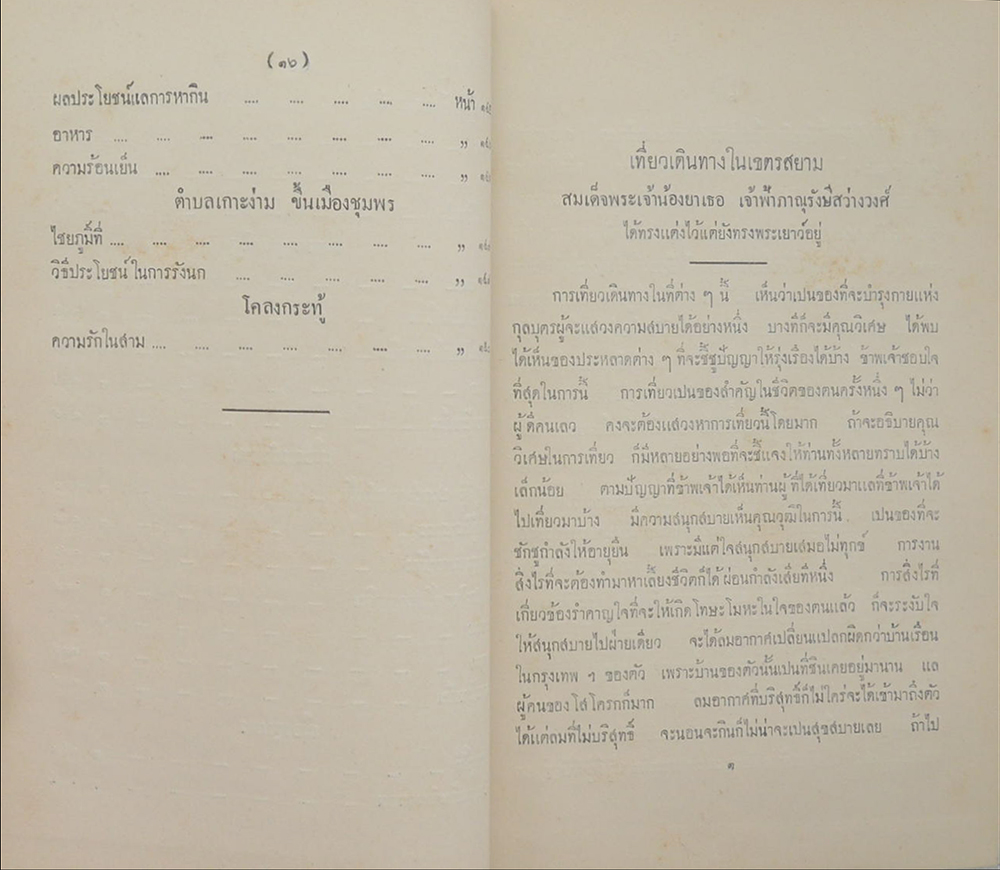 (๑๖)
ผลประโยชน์แลการหากิน .... .... .... .... .... หน้า
อาหาร .... .... .... .... .... .... .... .... „
ความร้อนเย็น .... .... .... .... .... .... .... „
ตำบลเกาะง่าม ขึ้นเมืองชุมพร
ไชยภูมิ์ที่ .... .... .... .... .... .... .... .... „
วิธีประโยชน์ในการรังนก .... .... .... .... .... „
โคลงกระทู้
ความรักในสาม .... .... .... .... .... .... .... „
เที่ยวเดินทางในเขตรสยาม
สมเด็จพระเจ้าน้องยาเธอ เจ้าฟ้าภาณุรังษีสว่างวงศ์
ได้ทรงแต่งไว้แต่ยังทรงพระเยาว์อยู่
การเที่ยวเดินทางในที่ต่าง ๆ นี้ เห็นว่าเปนของที่จะบำรุงกายแห่ง
กุลบุตรผู้จะแสวงความสบายได้อย่างหนึ่ง บางทีก็จะมีคุณวิเศษ ได้พบ
ได้เห็นของประหลาดต่าง ๆ ที่จะชี้ชูปัญญาให้รุ่งเรืองได้บ้าง ข้าพเจ้าชอบใจ
ที่สุดในการนี้ การเที่ยวเปนของสำคัญในชีวิตของคนครั้งหนึ่ง ๆ ไม่ว่า
ผู้ดีคนเลว คงจะต้องแสวงหาการเที่ยวนี้โดยมาก ถ้าจะอธิบายคุณ
วิเศษในการเที่ยว ก็มีหลายอย่างพอที่จะชี้แจงให้ท่านทั้งหลายทราบได้บ้าง
เล็กน้อย ตามปัญญาที่ข้าพเจ้าได้เห็นท่านผู้ที่ได้เที่ยวมาแลที่ข้าพเจ้าได้
ไปเที่ยวมาบ้าง มีความสนุกสบายเห็นคุณวุฒิในการนี้ เปนของที่จะ
ชักชูกำลังให้อายุยืน เพราะมีแต่ใจสนุกสบายเสมอไม่ทุกข์ การงาน
สิ่งไรที่จะต้องทำมาหาเลี้ยงชีวิตก็ได้ผ่อนกำลังเสียทีหนึ่ง การสิ่งไรที่
เกี่ยวข้องรำคาญใจที่จะให้เกิดโทษะโมหะในใจของตนแล้ว ก็จะระงับใจ
ให้สนุกสบายไปฝ่ายเดียว จะได้ลมอากาศเปลี่ยนแปลกผิดกว่าบ้านเรือน
ในกรุงเทพ ฯ ของตัว เพราะบ้านของตัวนั้นเปนที่ชินเคยอยู่มานาน แล
ผู้คนของโสโครกก็มาก ลมอากาศที่บริสุทธิ์ก็ไม่ใคร่จะได้เข้ามาถึงตัว
ได้แต่ลมที่ไม่บริสุทธิ์ จะนอนจะกินก็ไม่น่าจะเปนสุขสบายเลย ถ้าไป
๑